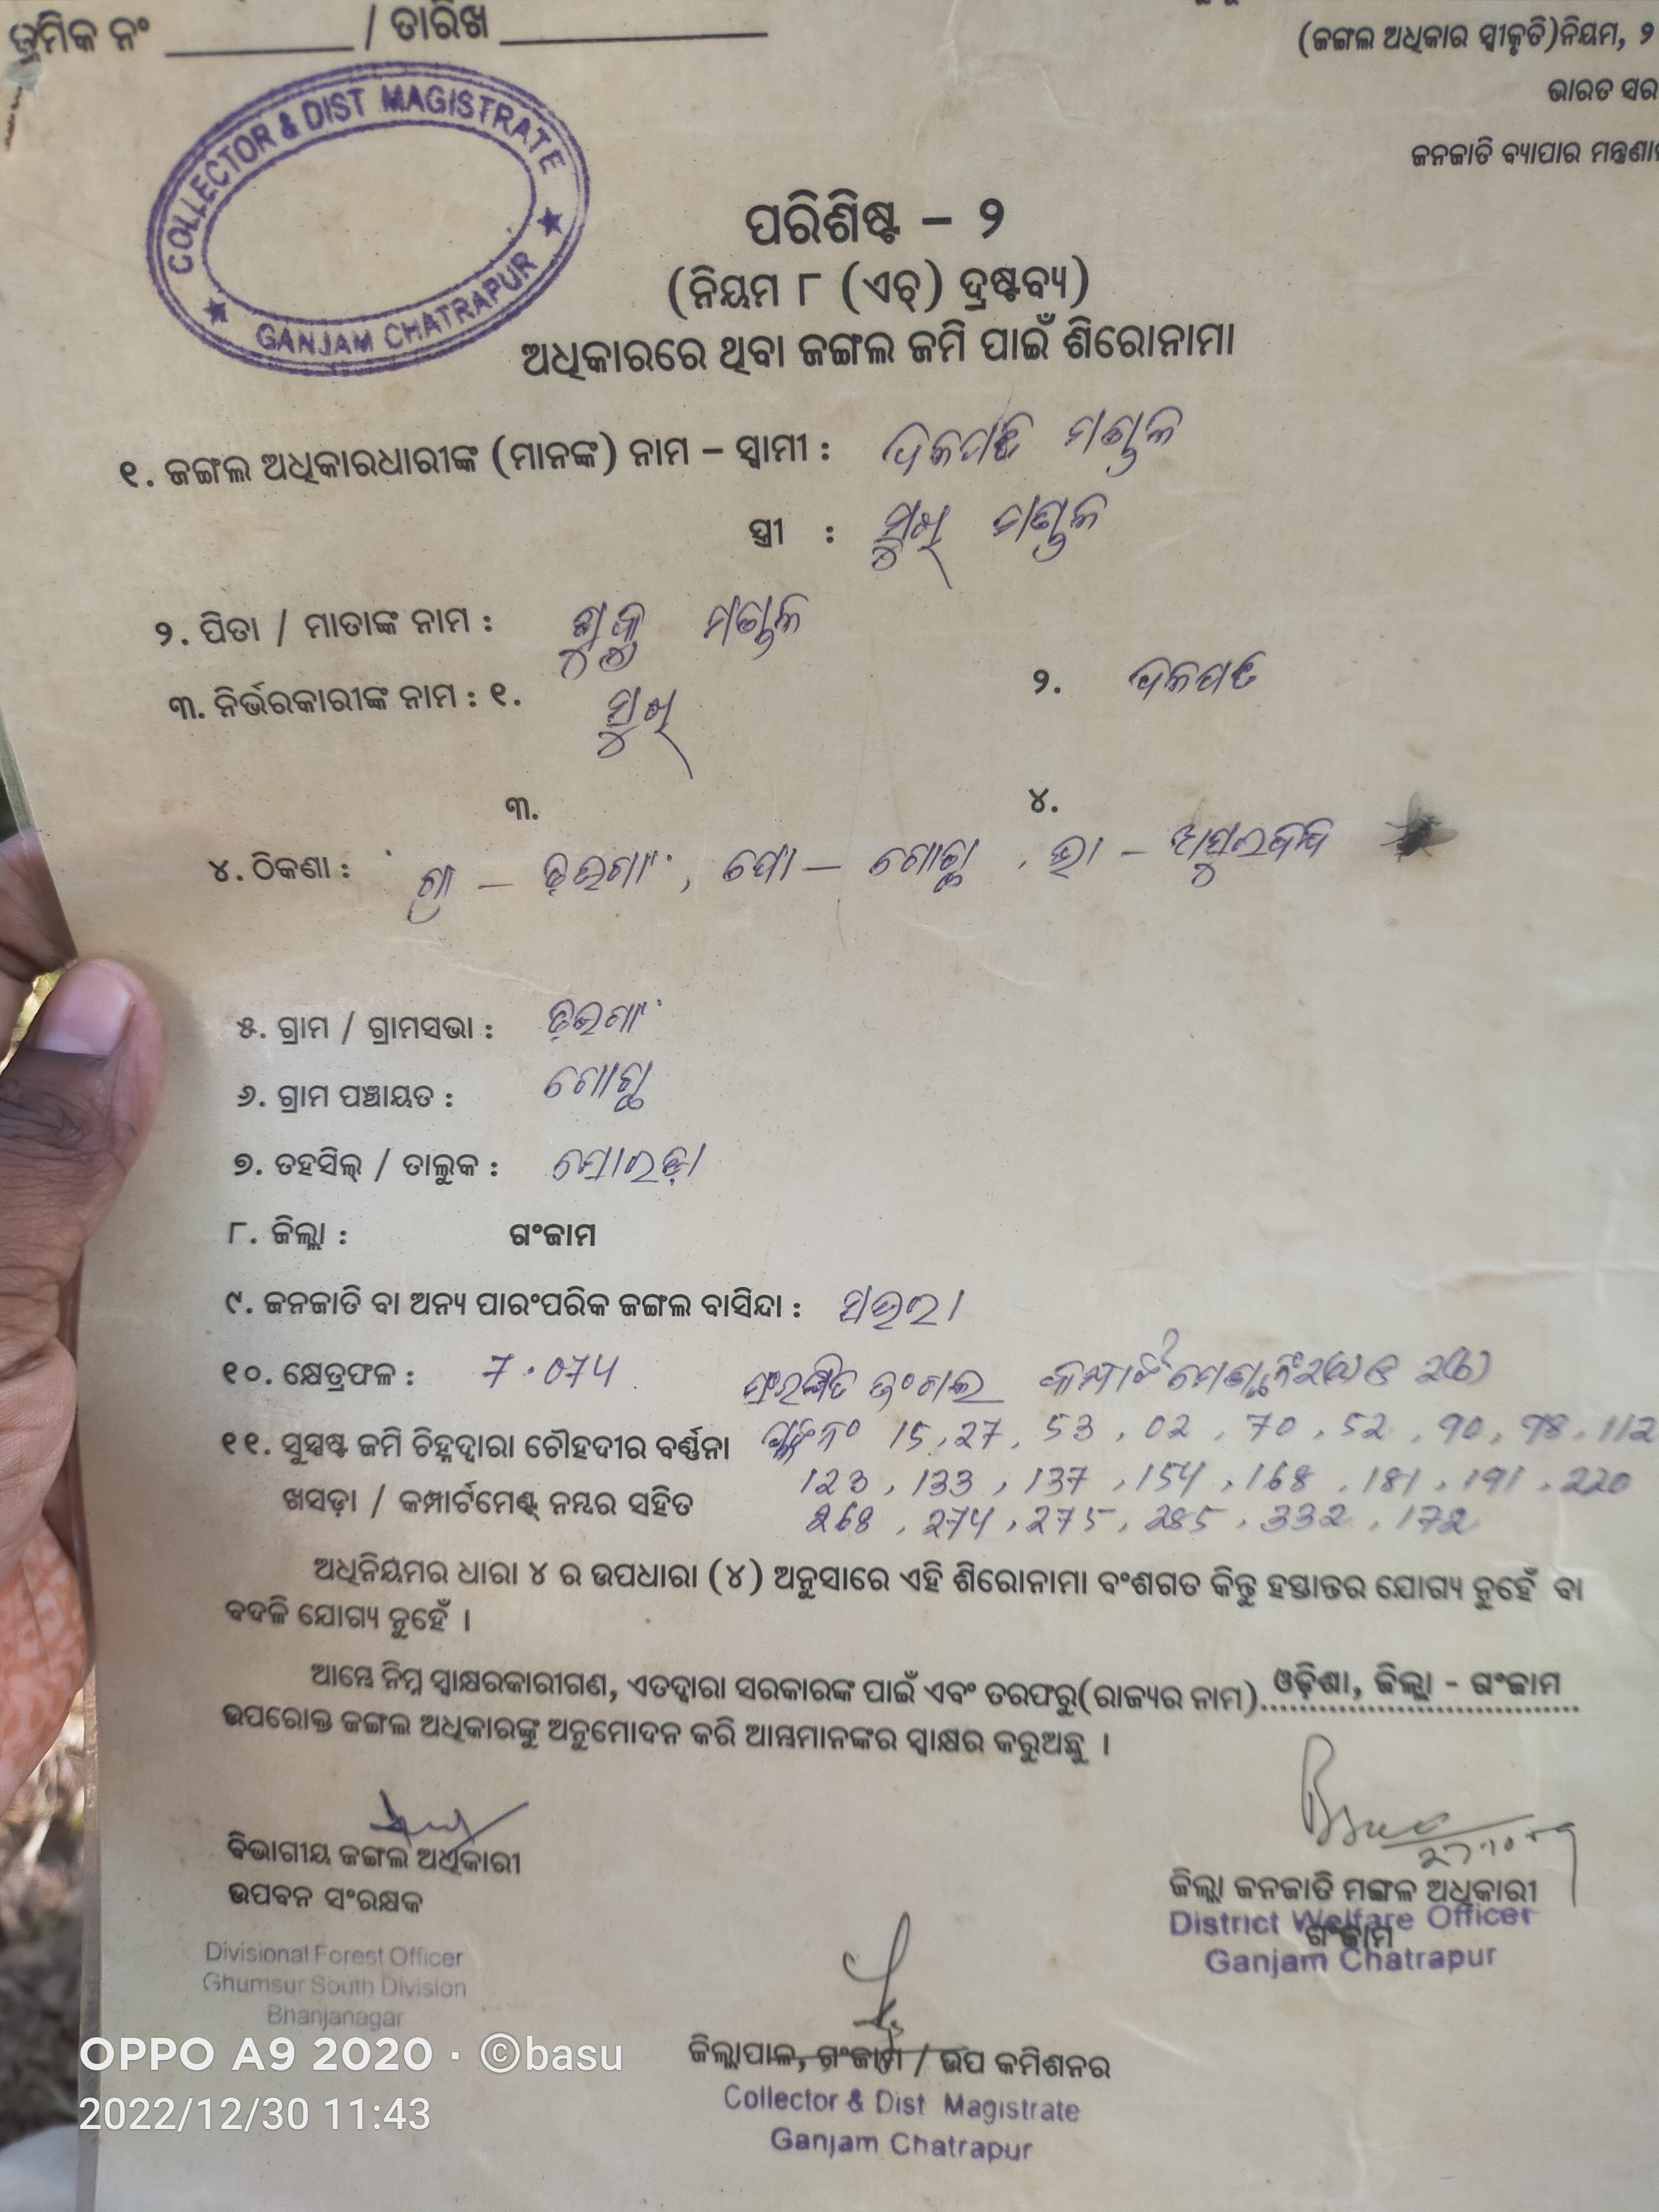 କ୍ରମିକ ନଂ / ତାରିଖ
(ଜଙ୍ଗଲ ଅଧିକାର ସ୍ୱୀକୃତି)ନିୟମ, ୨
ଭାରତ ସର
ଜନଜାତି ବ୍ୟାପାର ମନ୍ତ୍ରଣା
COLLECTOR & DIST MAGISTRATE
★ GANJAM CHATRAPUR ★
ପରିଶିଷ୍ଟ – ୨
(ନିୟମ ୮ (ଏଚ୍) ଦ୍ରଷ୍ଟବ୍ୟ)
ଅଧିକାରରେ ଥିବା ଜଙ୍ଗଲ ଜମି ପାଇଁ ଶିରୋନାମା
୧. ଜଙ୍ଗଲ ଅଧିକାରଧାରୀଙ୍କ (ମାନଙ୍କ) ନାମ – ସ୍ୱାମୀ : ମଣ୍ଡଳ
ସ୍ତ୍ରୀ : ମଣ୍ଡଳ
୨. ପିତା / ମାତାଙ୍କ ନାମ : ମଣ୍ଡଳ
୩. ନିର୍ଭରକାରୀଙ୍କ ନାମ : ୧. ୨.
୩. ୪.
୪. ଠିକଣା : ଗ୍ରା – , ପୋ –
୫. ଗ୍ରାମ / ଗ୍ରାମସଭା :
୬. ଗ୍ରାମ ପଞ୍ଚାୟତ :
୭. ତହସିଲ୍ / ତାଲୁକ : ସୋରଡ଼ା
୮. ଜିଲ୍ଲା : ଗଂଜାମ
୯. ଜନଜାତି ବା ଅନ୍ୟ ପାରଂପରିକ ଜଙ୍ଗଲ ବାସିନ୍ଦା : ସଉରା
୧୦. କ୍ଷେତ୍ରଫଳ : 7.074 ସଂରକ୍ଷିତ ଜଂଗଲ
୧୧. ସୁସ୍ପଷ୍ଟ ଜମି ଚିହ୍ନଦ୍ୱାରା ଚୌହଦୀର ବର୍ଣ୍ଣନା ନଂ 15, 27, 53, 02, 70, 52, 90, 98, 112
123, 133, 137, 154, 168, 181, 191, 220
ଖସଡ଼ା / କମ୍ପାର୍ଟମେଣ୍ଟ୍ ନମ୍ବର ସହିତ
268, 274, 275, 285, 332, 172
ଅଧିନିୟମର ଧାରା ୪ ର ଉପଧାରା (୪) ଅନୁସାରେ ଏହି ଶିରୋନାମା ବଂଶଗତ କିନ୍ତୁ ହସ୍ତାନ୍ତର ଯୋଗ୍ୟ ନୁହେଁ ବା
ବଦଳି ଯୋଗ୍ୟ ନୁହେଁ ।
ଆମ୍ଭେ ନିମ୍ନ ସ୍ୱାକ୍ଷରକାରୀଗଣ, ଏତଦ୍ଦ୍ୱାରା ସରକାରଙ୍କ ପାଇଁ ଏବଂ ତରଫରୁ(ରାଜ୍ୟର ନାମ)..ଓଡ଼ିଶା, ଜିଲ୍ଲା - ଗଂଜାମ
ଉପରୋକ୍ତ ଜଙ୍ଗଲ ଅଧିକାରଙ୍କୁ ଅନୁମୋଦନ କରି ଆମ୍ଭମାନଙ୍କର ସ୍ୱାକ୍ଷର କରୁଅଛୁ ।
ବିଭାଗୀୟ ଜଙ୍ଗଲ ଅଧିକାରୀ
ଉପବନ ସଂରକ୍ଷକ
Divisional Forest Officer
Ghumsur South Division
Bhanjanagar
ଜିଲ୍ଲା ଜନଜାତି ମଙ୍ଗଳ ଅଧିକାରୀ
ଗଂଜାମ
District Welfare Officer
Ganjam Chatrapur
ଜିଲ୍ଲାପାଳ, ଗଂଜାମ / ଉପ କମିଶନର
Collector & Dist Magistrate
Ganjam Chatrapur
OPPO A9 2020 · ©basu
2022/12/30 11:43